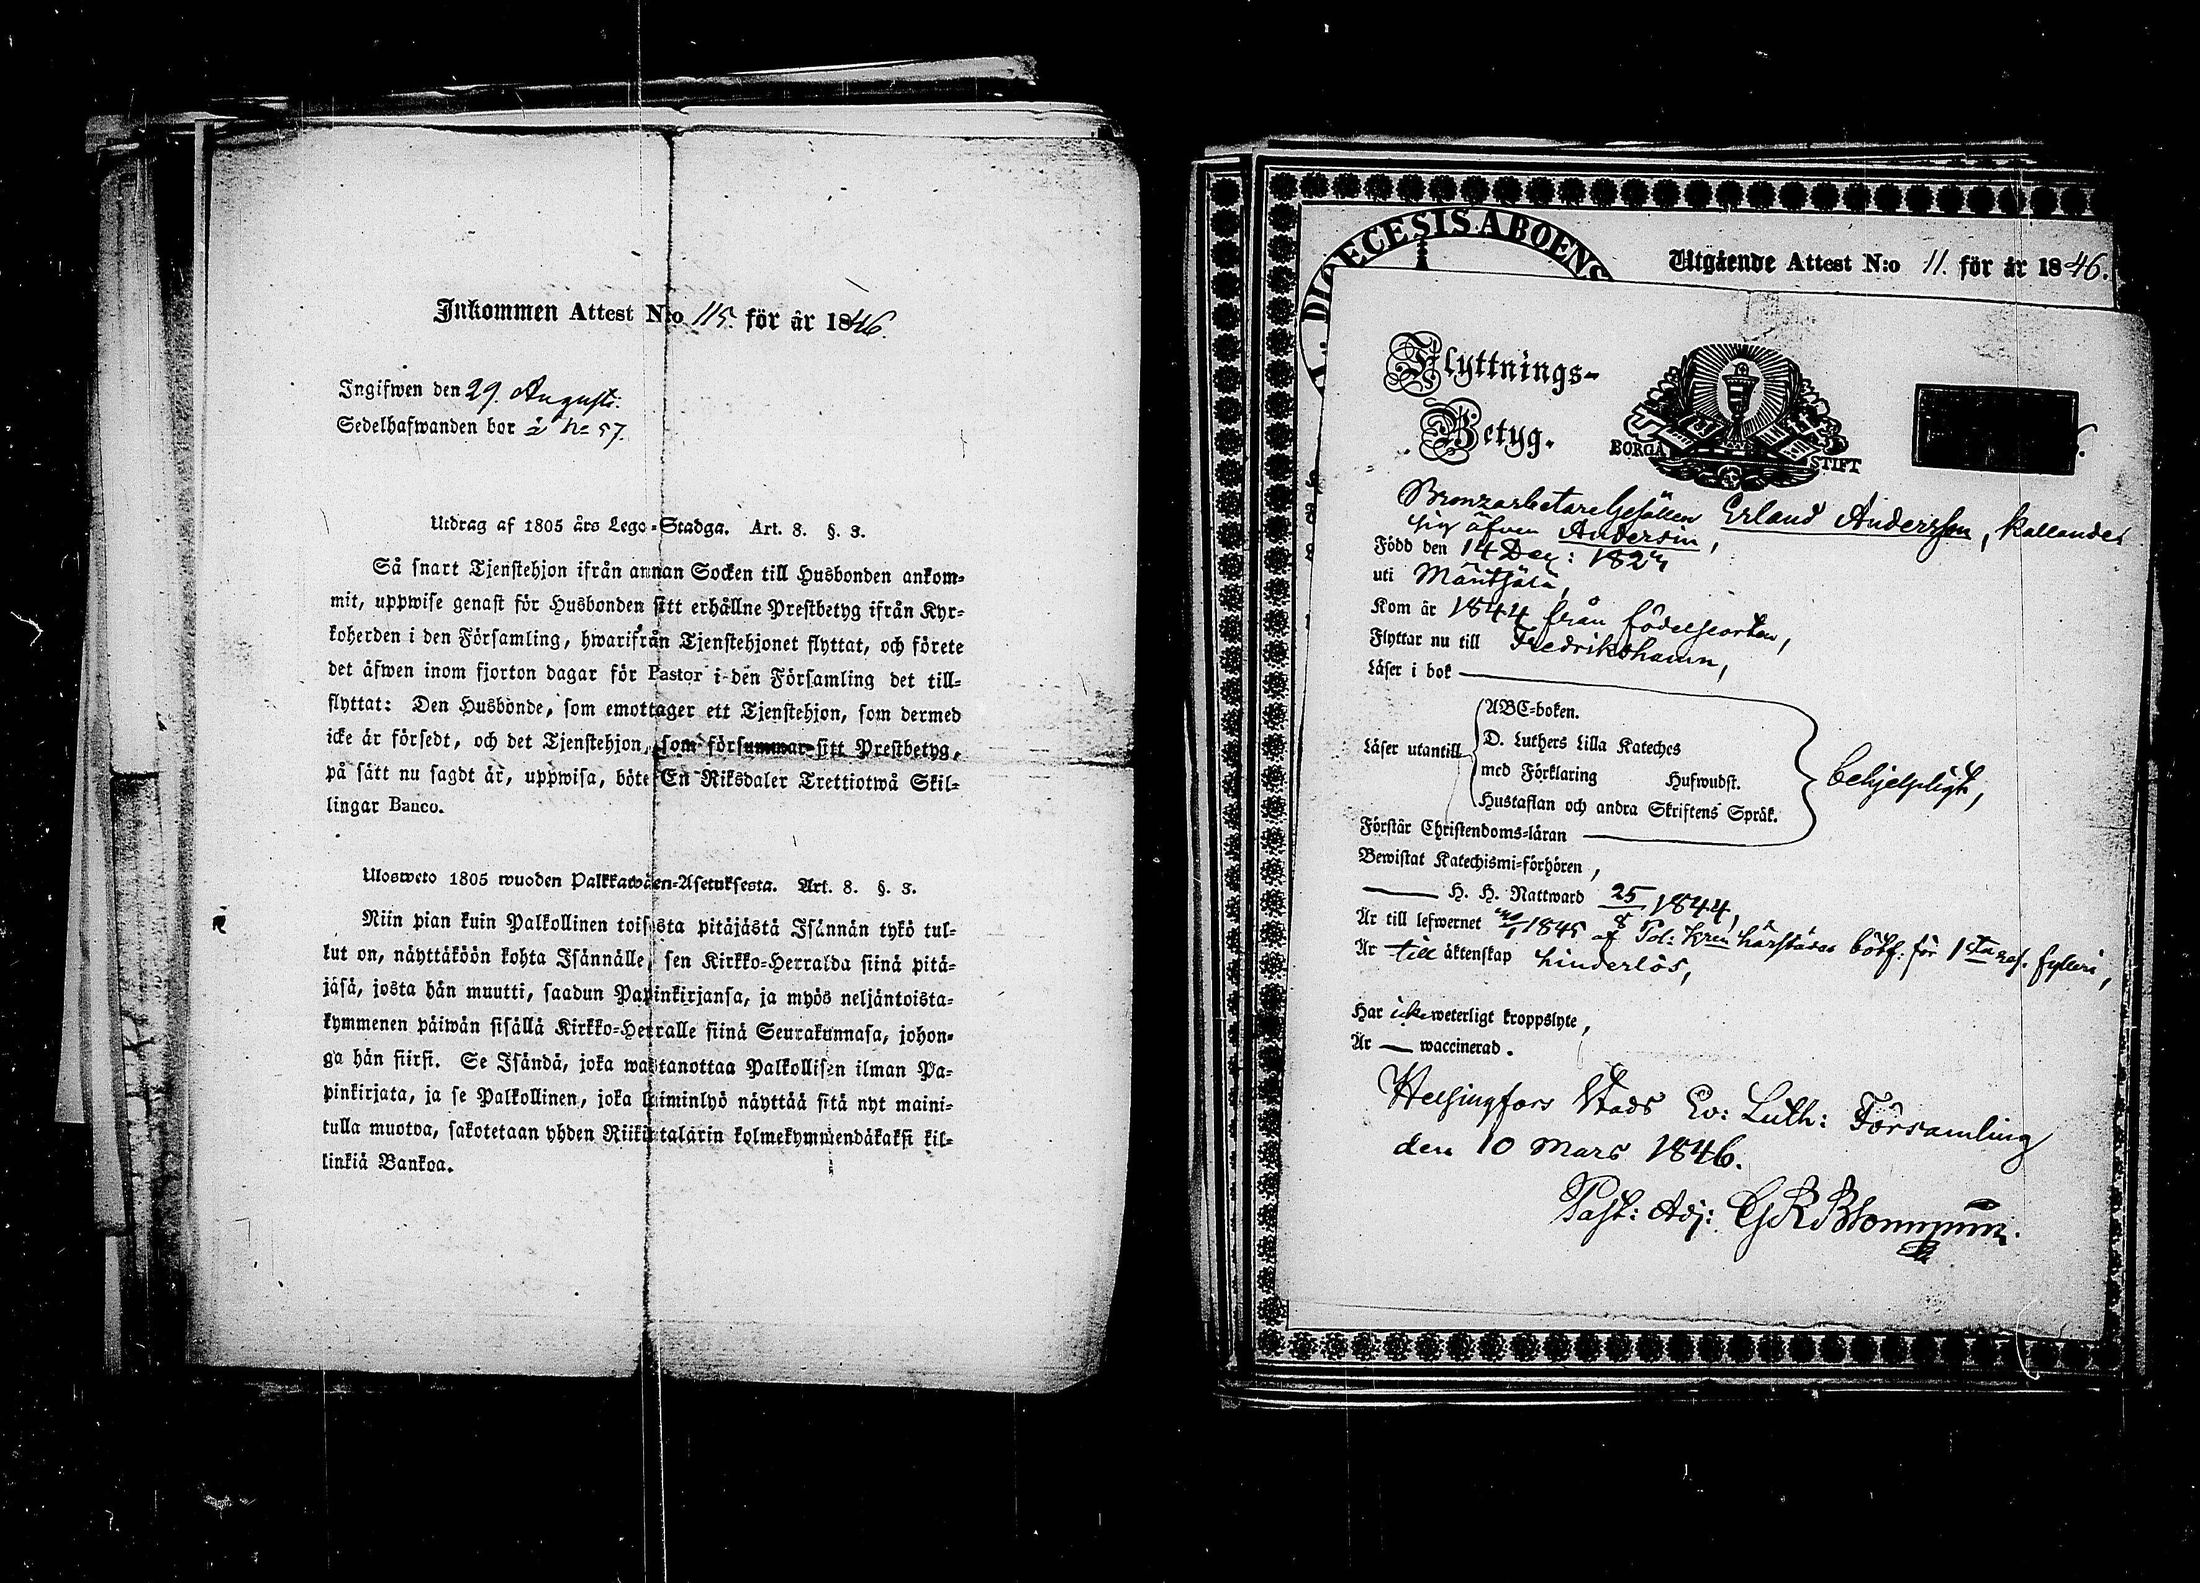 Inkommen Attest N:o 115. för år 1846.
Ingifwen den 29. Augusti.
Sedelhafwanden bor å No 57.
Utdrag af 1805 års Lego-Stadga. Art. 8. §. 3.
Så snart Tjenstehjon ifrån annan Socken till Husbonden ankom-
mit, uppwise genast för Husbonden sitt erhållne Prestbetyg ifrån Kyr-
koherden i den Församling, hwarifrån Tjenstehjonet flyttat, och förete
det äfwen inom fjorton dagar för Pastor i den Församling det till-
flyttat: Den Husbonde, som emottager ett Tjenstehjon, som dermed
icke är försedt, och det Tjenstehjon, som försummar sitt Prestbetyg,
på sätt nu sagdt är, uppwisa, böte En Riksdaler Trettiotwå Skil-
lingar Banco.
Ulosweto 1805 wuoden Palkkawäen-Asetuksesta. Art. 8. §. 3.
Niin pian kuin Palkollinen toisesta pitäjästä Isännän tykö tul-
lut on, näyttäköön kohta Isännälle, sen Kirkko-Herralda siinä pitä-
jäsä, josta hän muutti, saadun Papinkirjansa, ja myös neljäntoista-
kymmenen päiwän sisällä Kirkko-Herralle siinä Seurakunnasa, johon-
ga hän siirsi. Se Isändä, joka wastanottaa Palkollisen ilman Pa-
pinkirjata, ja se Palkollinen, joka laiminlyö näyttää sitä nyt maini-
tulla muotoa, sakotetaan yhden Riikintalarin kolmekymmendäkaksi kil-
linkiä Bankoa.
DIOECESIS ABOENS
Utgående Attest N:o 11. för år 1846.
Flyttnings-
Betyg.
BORGÅ STIFT
Bronzarbetaregesällen Erland Andersson, kallandes
sig äfven Andersin,
Född den 14 Dec: 182
uti Mäntsälä,
Kom år 1844 från födelseorten,
Flyttar nu till Fredrikshamn,
Läser i bok
Läser utantill
ABC-boken.
D. Luthers Lilla Kateches
med Förklaring Hufwudst.
Hustaflan och andra Skriftens Språk.
behjelpligt,
Förstår Christendoms-läran
Bewistat Katechismi-förhören,
H. H. Nattward 25/8 1844,
Är till lefwernet 1845 af Pol: härstädes bötf: för 1sta fylleri,
Är till äktenskap hinderlös,
Har icke weterligt kroppslyte,
Är — waccinerad.
Helsingfors Stads Ev: Luth: Församling
den 10 Mars 1846.
Past: Adj: